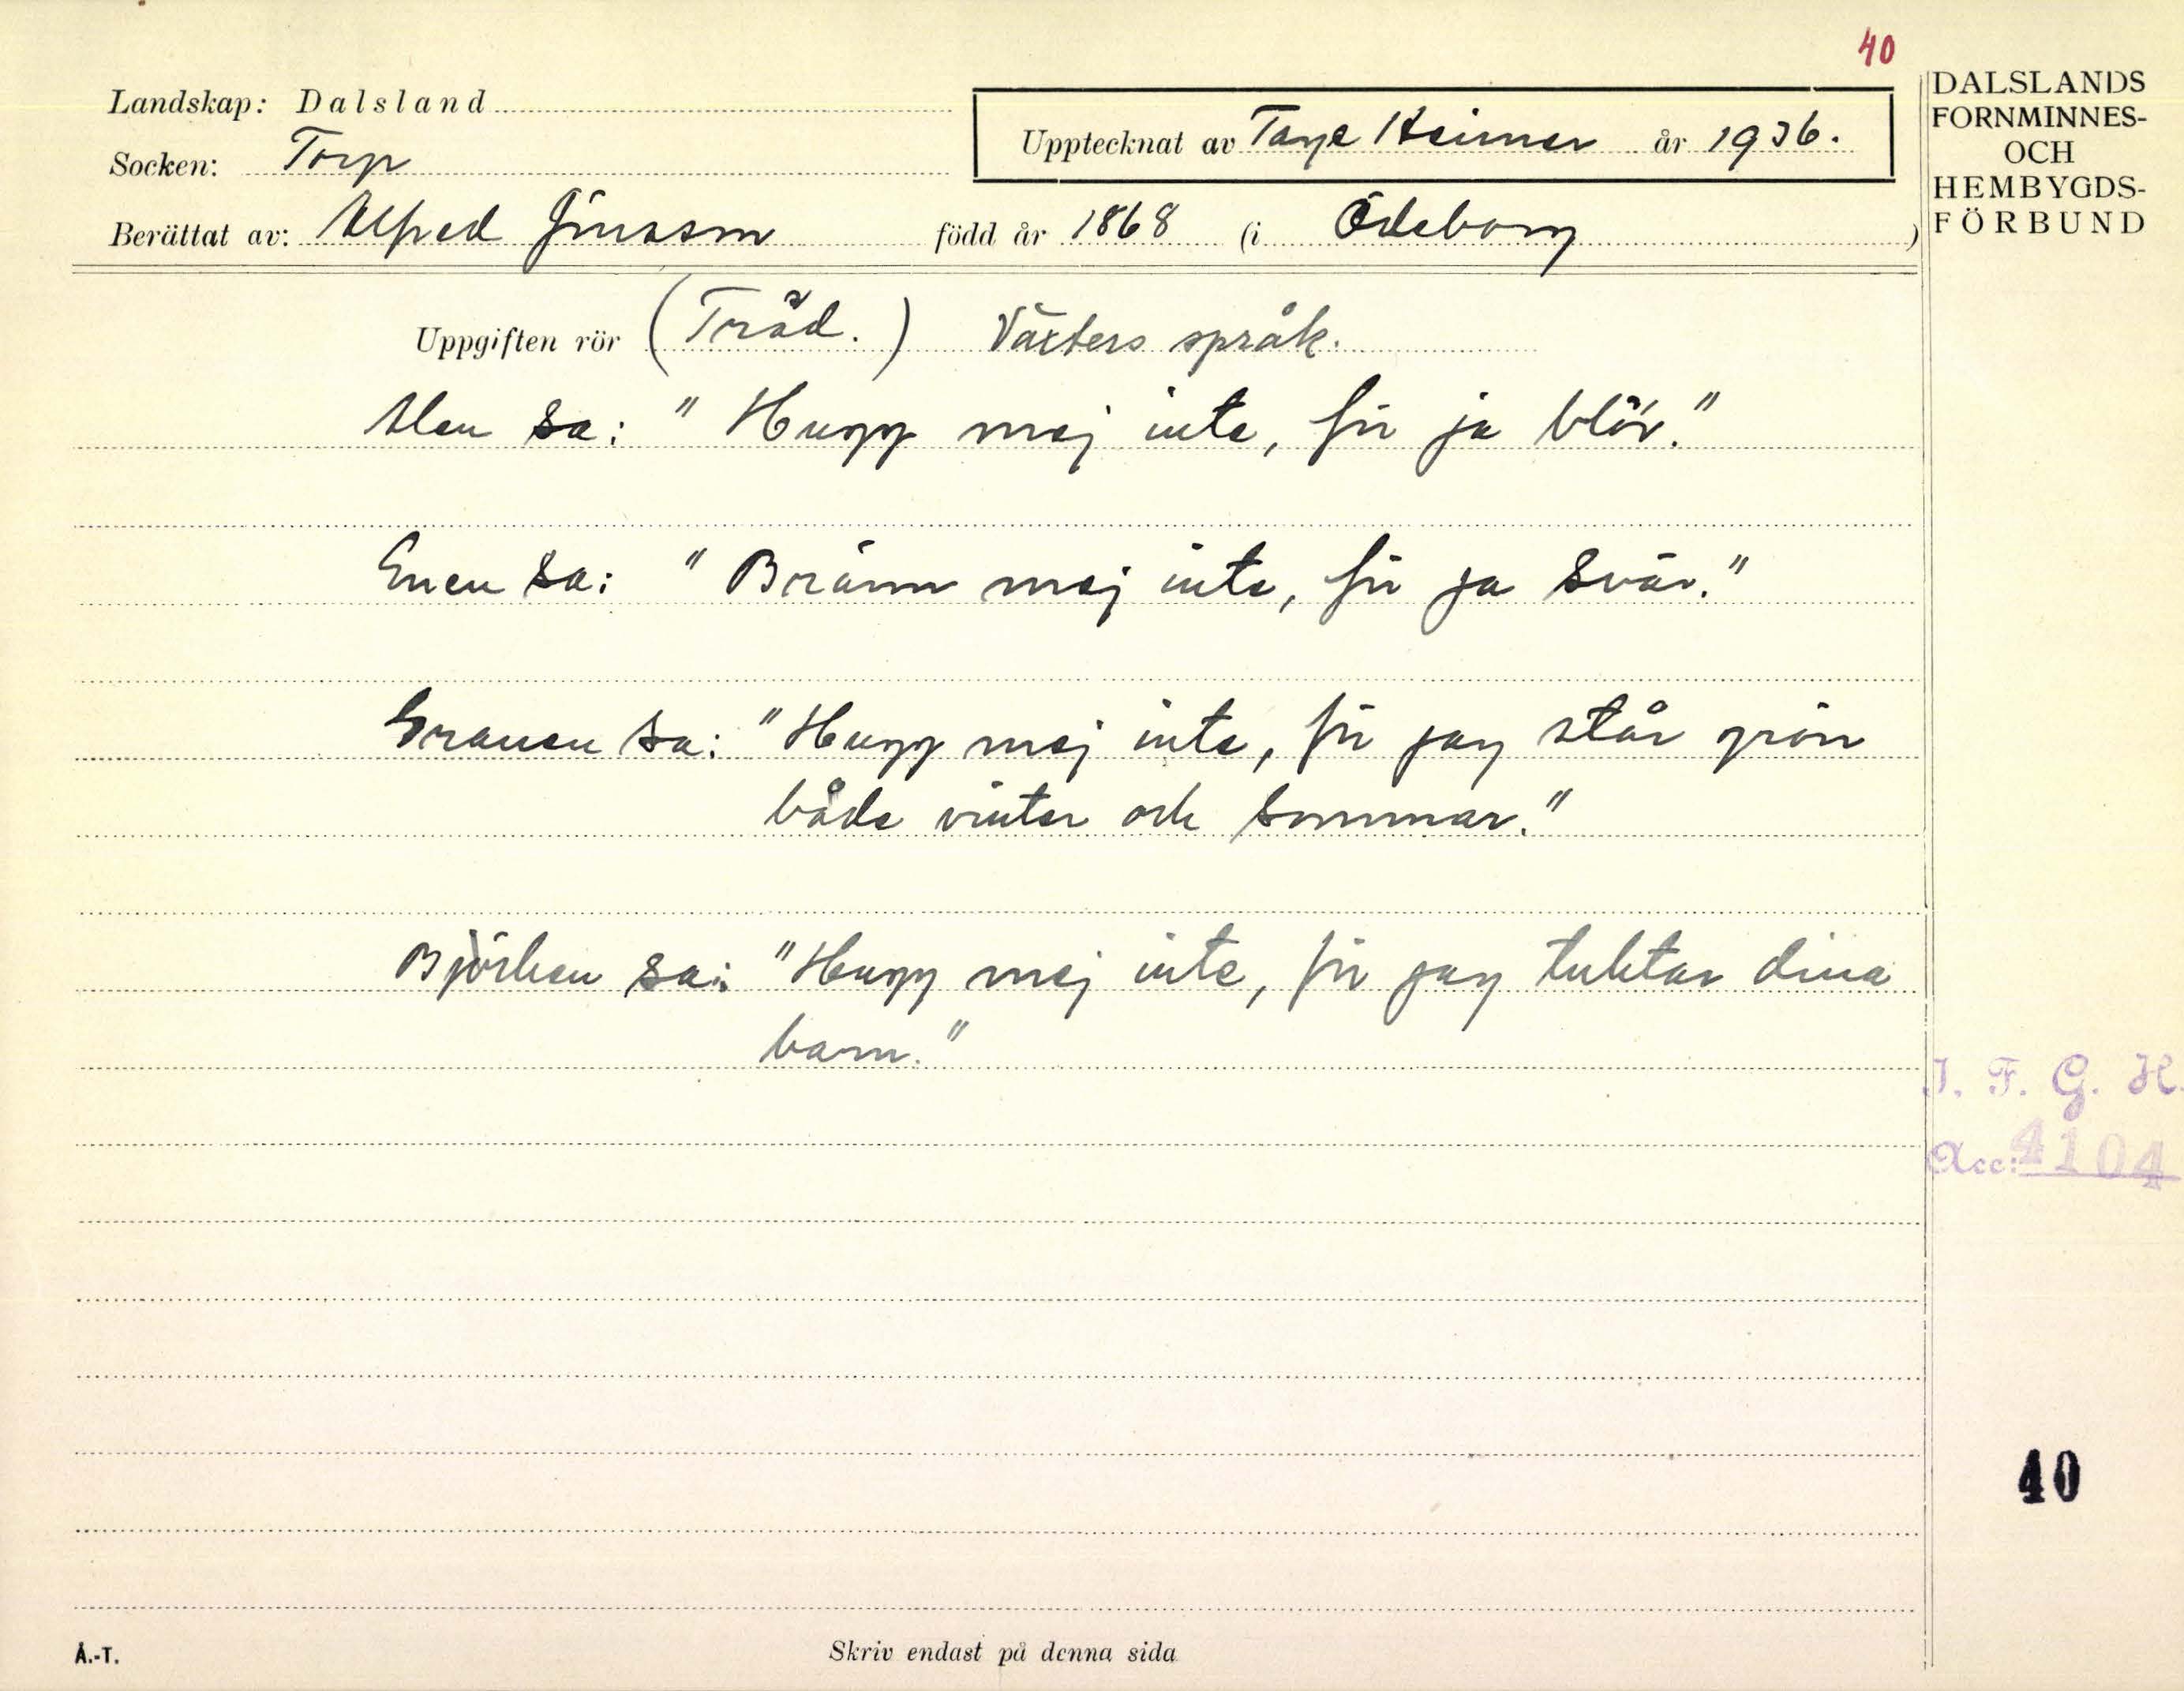 40
Landskap: Dalsland
Socken: Torp
Upptecknat av Tage Heimer år 1936.
Berättat av: Alfred Jonasson född år 1868 (i Ödeborg )
DALSLANDS
FORNMINNES-
OCH
HEMBYGDS-
FÖRBUND
Uppgiften rör (Träd.) Växters språk.
Alen sa: "Hugg mej inte, för ja blör."
Enen sa: "Bränn mej inte, för ja svär."
Granen sa: "Hugg mej inte, för jag står grön
både vinter och sommar."
Björken sa: "Hugg mej inte, för jag tuktar dina
barn."
I. F. G. H.
Acc: 4104
40
Å.-T.
Skriv endast på denna sida